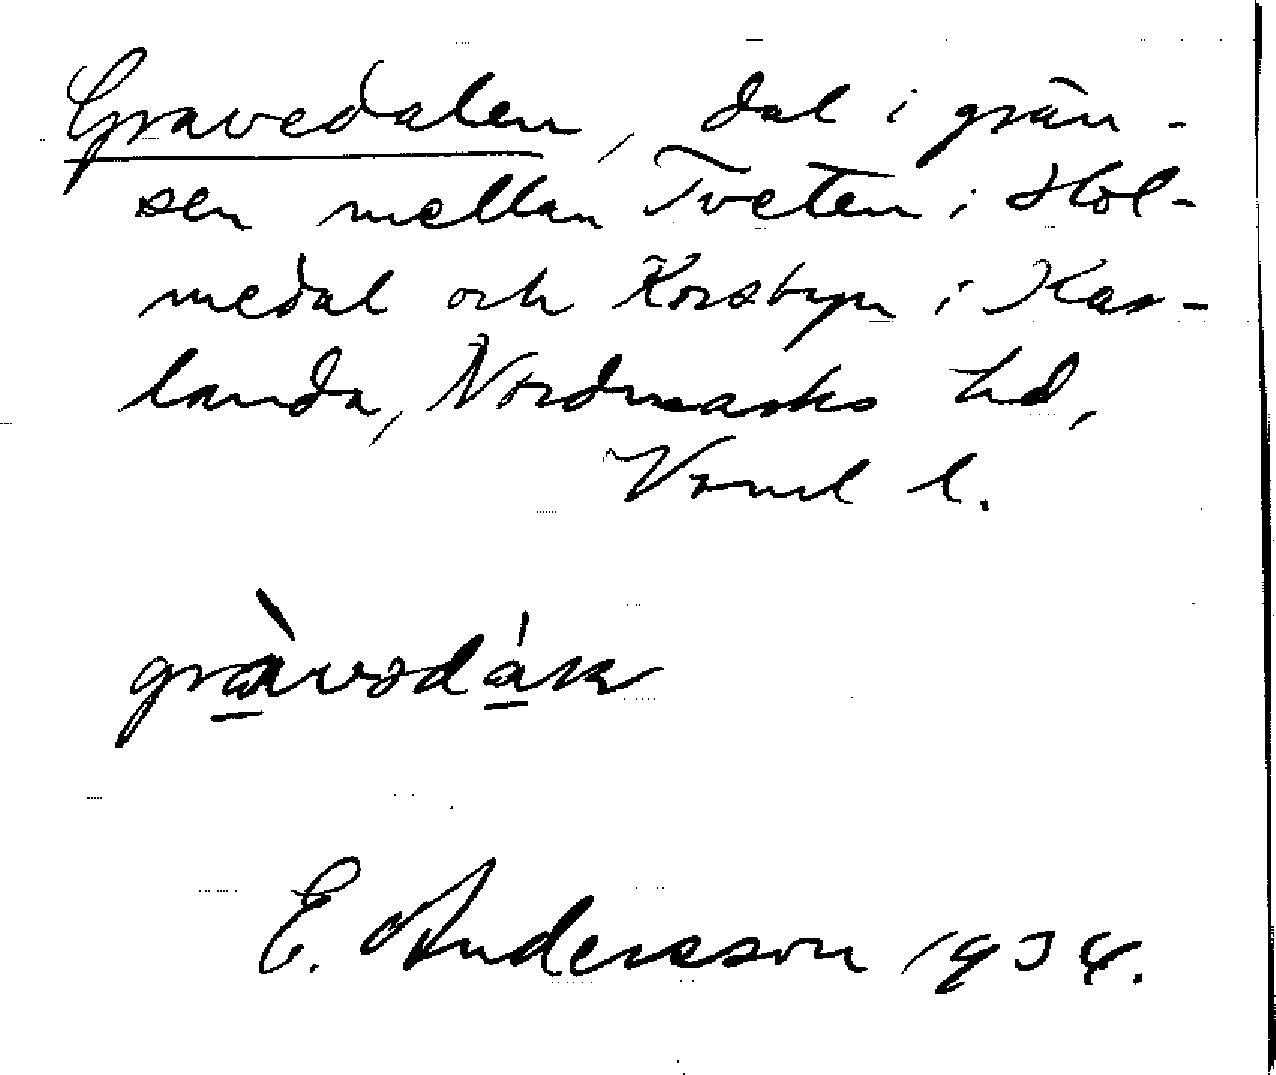 Gravedalen, dal i grän-
sen mellan Tveten i Hol-
medal och Korsbyn i Kar-
landa, Nordmarks hd,
Värml l.
gràvədáln
E. Andersson 1934.